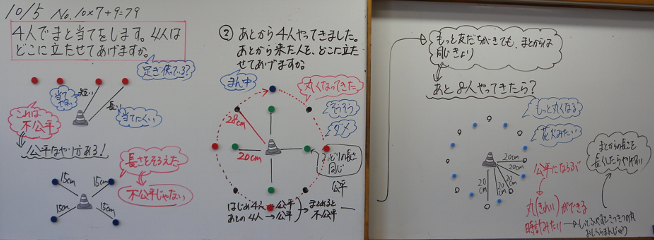 10/5 No.10×7+9=79
4人でまと当てをします。4人は
どこに立たせてあげますか。
当て
やすい
短い
長い
当てにくい
これは
不公平
公平なやり方ある!
長さをそろえた
不公平じゃない
15cm
15cm
15cm
15cm
② あとから4人やってきました。
あとから来た人を、どこに立た
せてあげますか。
まん中
丸くなってきた
28cm
20cm
ダメ
同じ
公平
はじめ4人→公平
あとの4人→公平
まとめると
不公平
もっと友だちがきても、まとからは
同じきょり
あと8人やってきたら?
もっと丸くなる
花火みたい
20cm
20cm
20cm
20cm
公平にならぶ
丸(きれい)ができる
時計みたい
まとからの長さを
長くしたらやりやすい